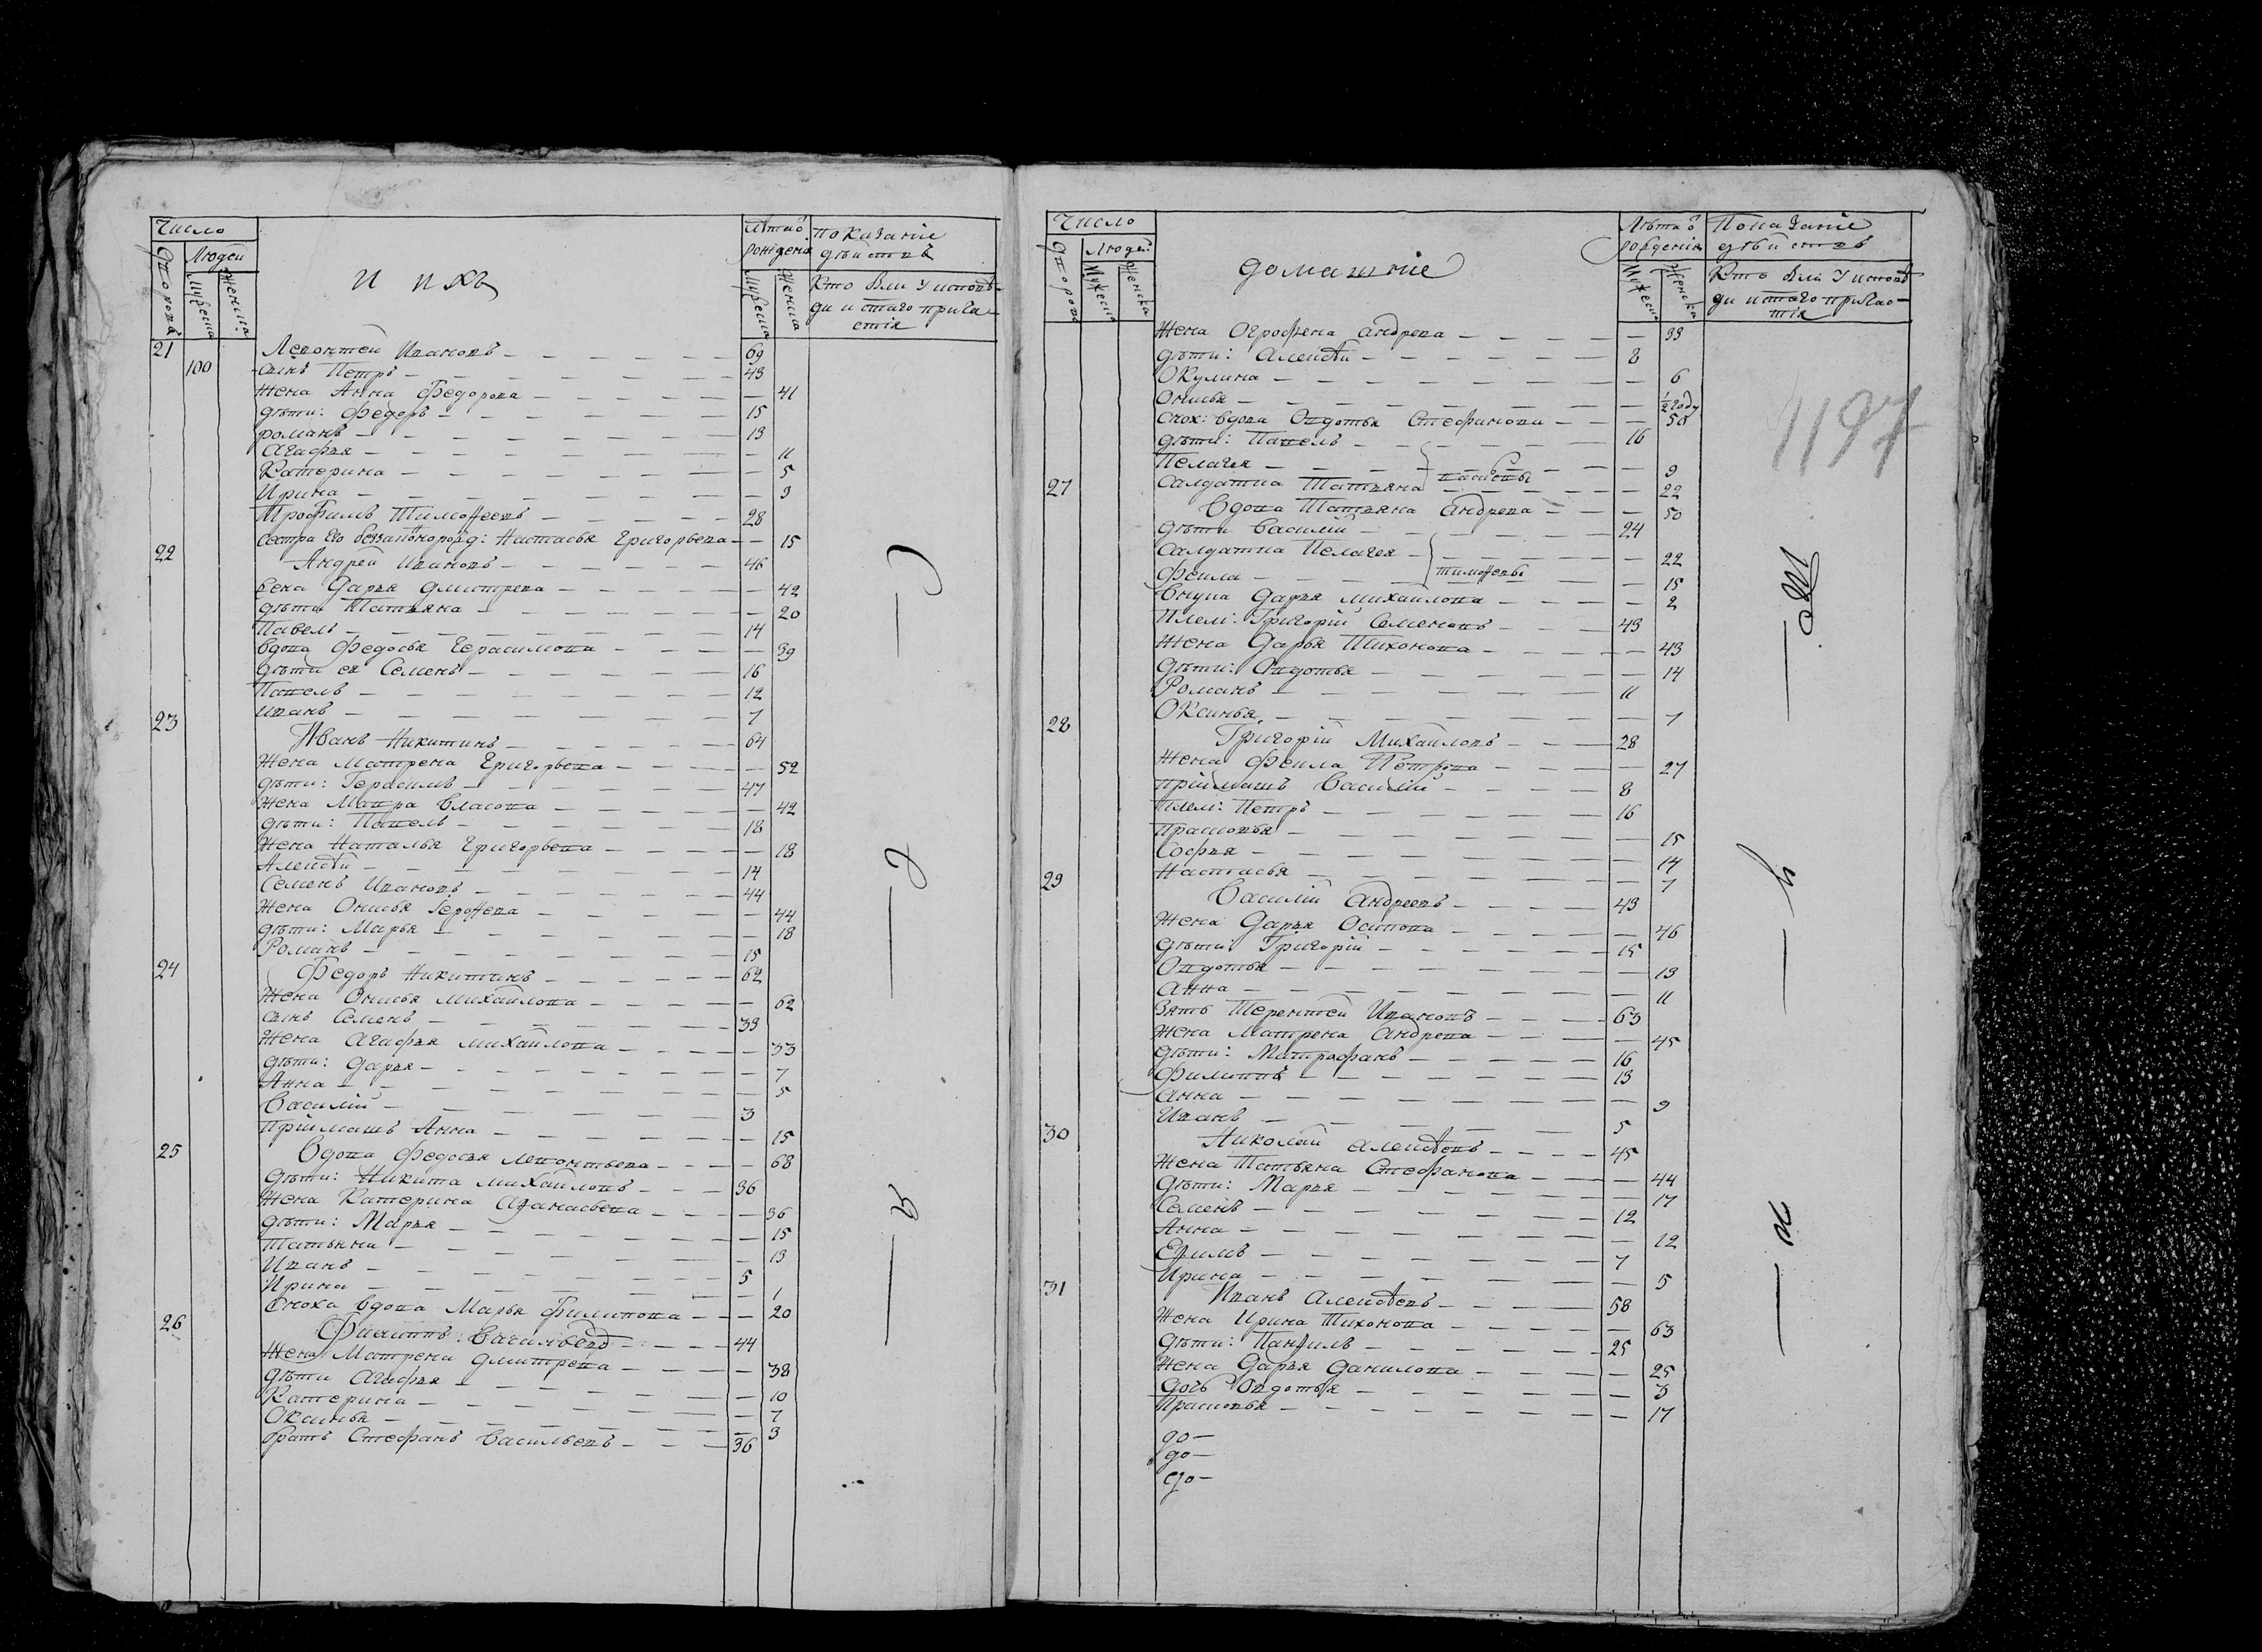 Число
Людей
Дворовъ
Мужеска
Женска
и ихъ
Лѣта ѿ рождениѧ
Мужеска
Женска
показаніе дѣйствъ
Кто Былъ У исповѣди и стаго причастія
21
Левонтей Ивановъ 69
100 сынъ Петръ 43
Жена Анна Федорова 41
дѣти: Федоръ 15
романъ 13
Агафья 11
Катерина 5
Ирина 3
Трофимъ Тимоѳеевъ 28
сестра Его Настасья Григорьева 15
22
Андрей Ивановъ 46
Жена Дарья Дмитрева 42
дѣти Татьяна 20
Павелъ 14
вдова Федосья Герасимова 39
дѣти ея Семенъ 16
Павелъ 12
иванъ 7
23
Иванъ Никитинъ 64
Жена Матрена Григорьева 52
дѣти: Герасимъ 47
Жена Мавра Власова 42
дѣти: Павелъ 18
Жена Наталья Григорьева 18
Алексѣй 14
Семенъ Ивановъ 44
Жена Онисья Героѳева 44
дѣти: Марья 18
Романъ 15
24
Федоръ Никитинъ 62
Жена Онисья Михайлова 62
сынъ Семенъ 33
Жена Агафья Михайлова 33
дѣти: Дарья 7
Анна 5
Василій 3
пріймашъ Анна 15
25
Вдова Федосья Левонтьева 68
дѣти: Никита Михайловъ 36
Жена Катерина Аѳанасьева 36
дѣти: Марья 15
Татьяна 13
Иванъ 5
Ирина 1
Сноха вдова Марья Филипова 20
26
Филиппъ Васильевъ 44
Жена Матрена Дмитрева 38
дѣти Агафья 10
Катерина 7
Оксинья 3
братъ Стефанъ Васильевъ 36
С
—
Е
—
В
—
Число
Людей
Дворовъ
Мужеска
Женска
домашніе
Лѣта ѿ рожденія
Мужеска
Женска
Показаніе дѣйствъ
Кто Былъ У исповѣди и стаго причастія
1197
Жена Огрофена Андрева 33
дѣти: Алексѣй 8
Окулина 6
Онисья ½ году
снох: вдова Овдотья Стефанова 50
дѣти: Павелъ 16
Пелагея 9
27
салдатка Татьяна 22
Вдова Татьяна Андрева 50
дѣти Василій 24
салдатка Пелагея 22
Фекла тимоѳевы 15
внука Дарья Михайлова 2
Плем: Григорій Семеновъ 43
Жена Дарья Тихонова 43
дѣти: Овдотья 14
Романъ 11
Оксинья 7
28
Григорій Михайловъ 28
Жена Фекла Петрова 27
пріймашъ Василій 8
плем: Петръ 16
Прасковья 15
Софья 14
Настасья 7
29
Василій Андреевъ 43
Жена Дарья Осипова 46
дѣти Григорій 15
Овдотья 13
Анна 11
Зять Терентей Ивановъ 63
Жена Матрена Андрева 45
дѣти: Митрофанъ 16
Филиппъ 13
Анна 9
Иванъ 5
30
Николай Алексѣевъ 45
Жена Татьяна Стефанова 44
дѣти: Марья 17
Семенъ 12
Анна 12
Ефимъ 7
Ирина 5
31
Иванъ Алексѣевъ 58
Жена Ирина Тихонова 63
дѣти: Панфилъ 25
Жена Дарья Данилова 25
дочь Овдотья 3
Прасковья 17
до—
до—
до—